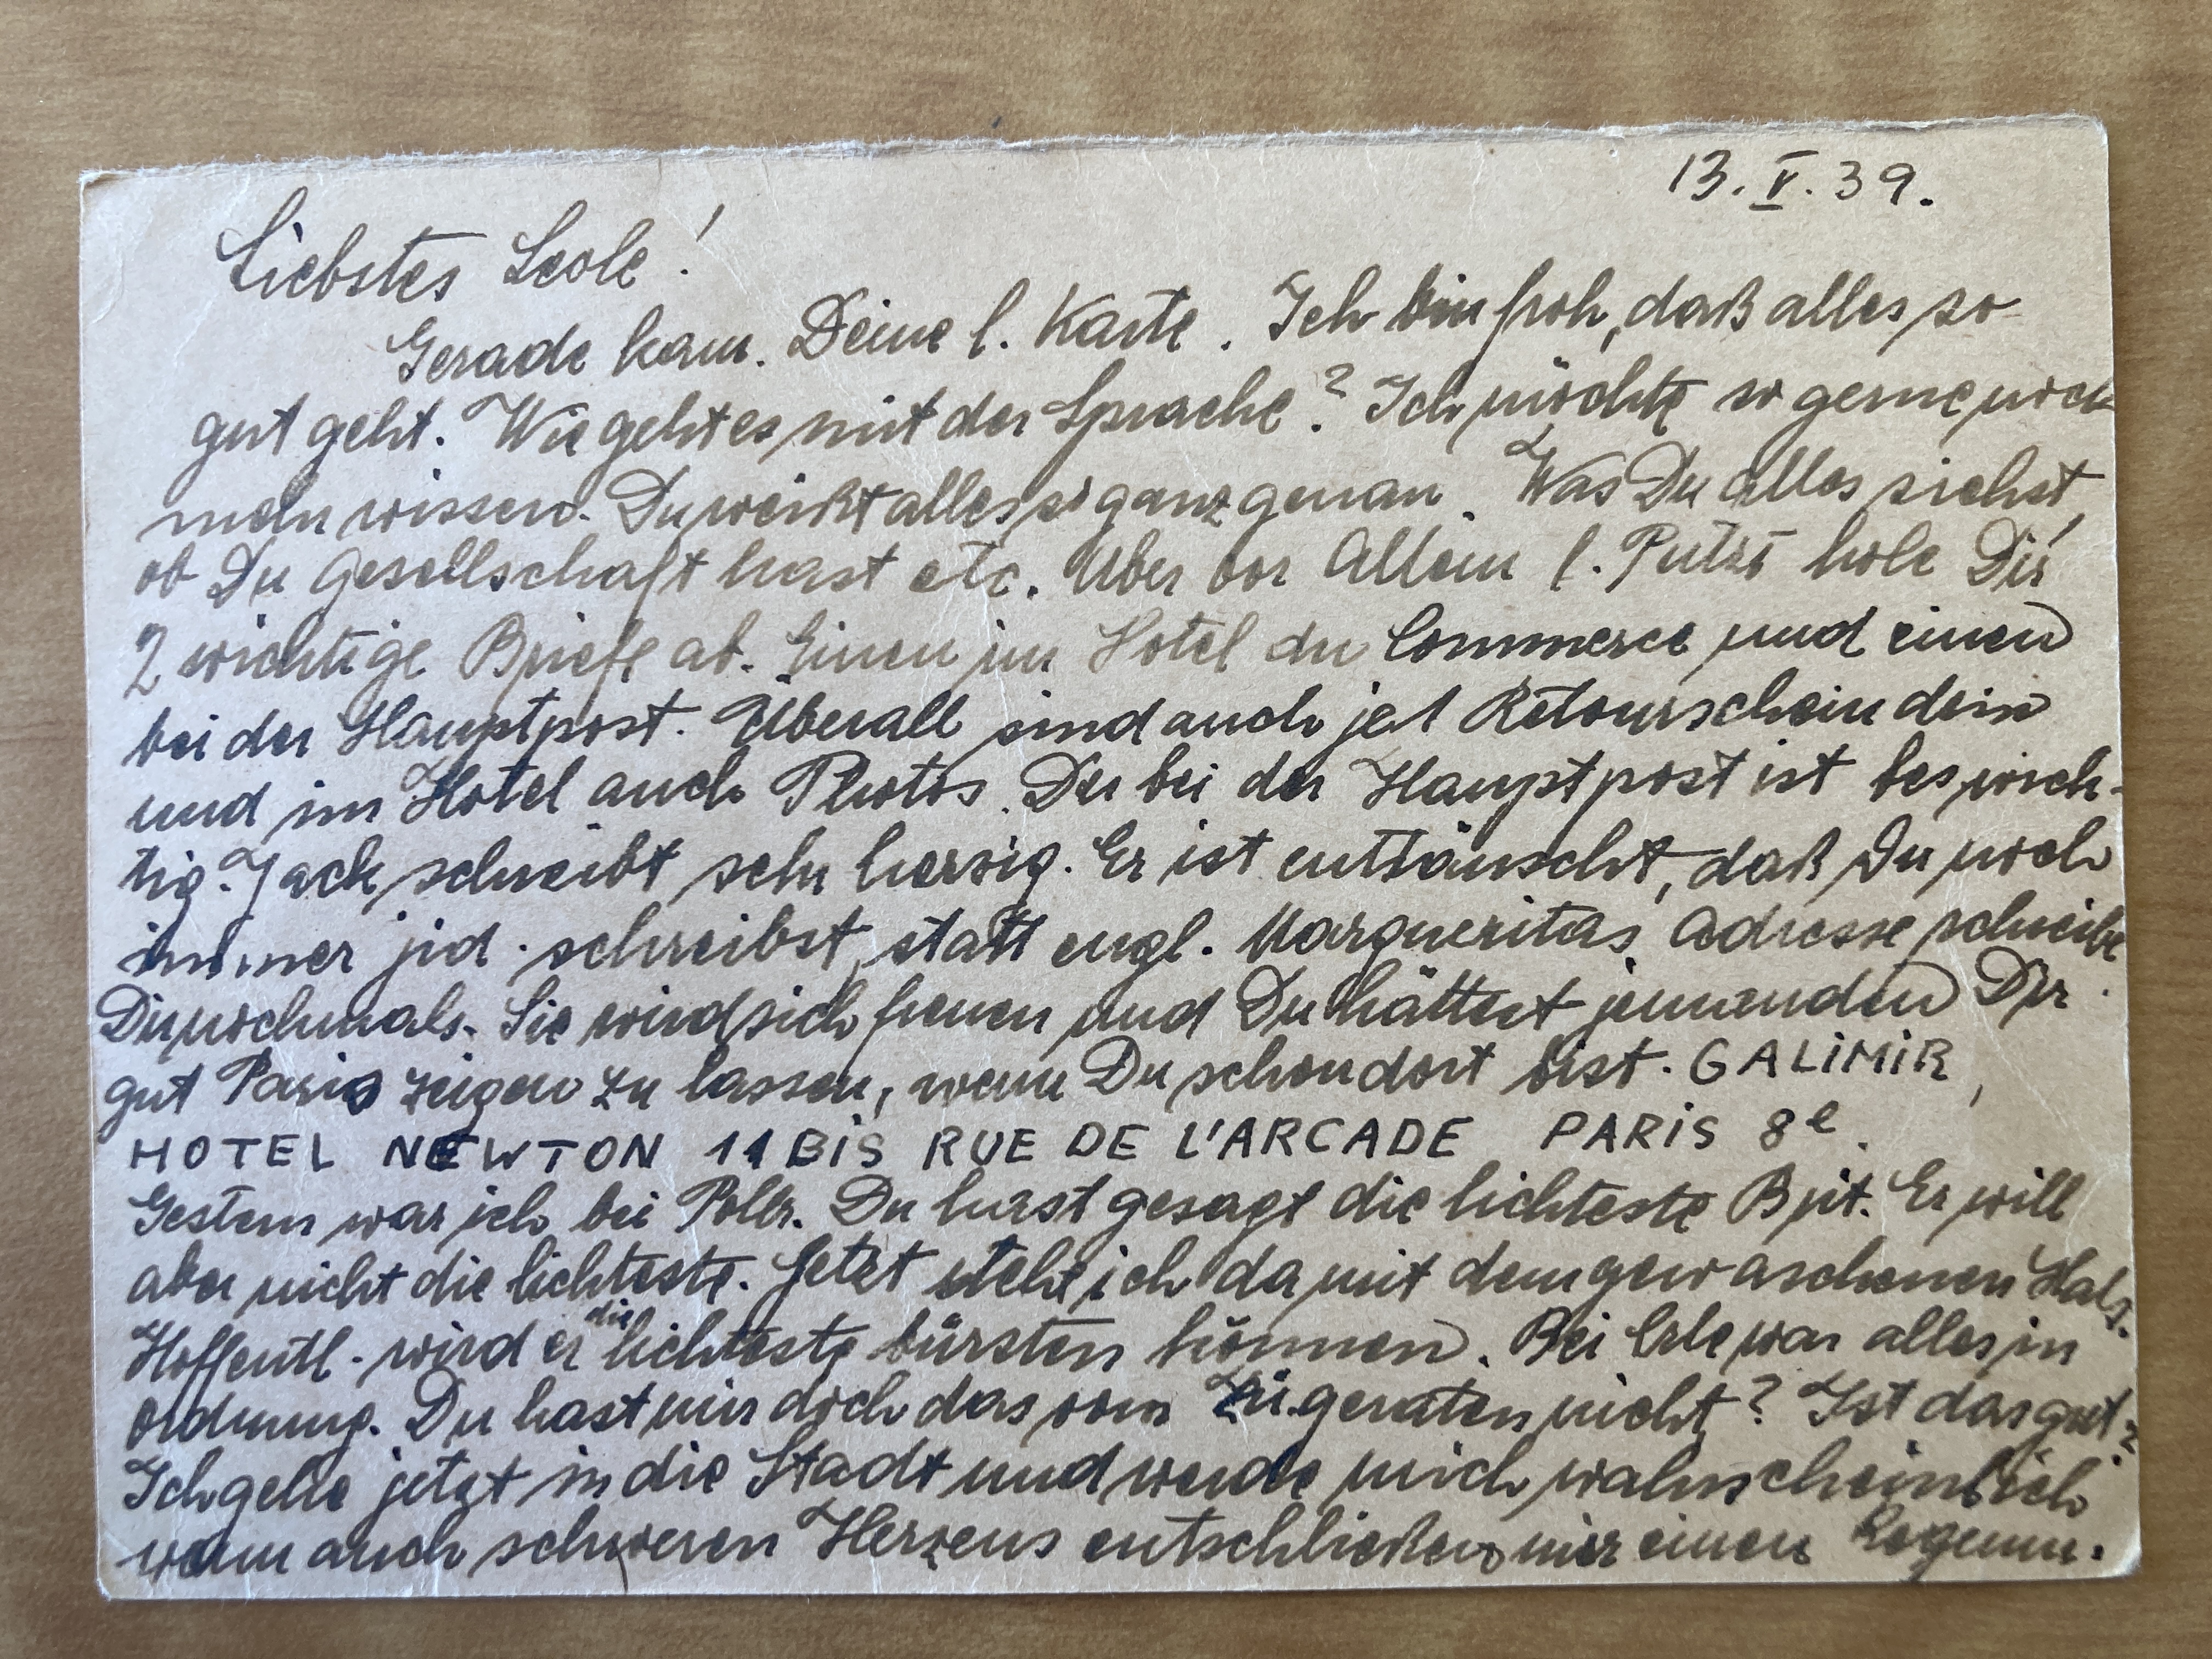 13. V. 39.
Liebstes Leole!
Gerade kam. Deine l. Karte. Ich bin froh, daß alles so
gut geht. Wie geht es mit der Sprache? Ich möchte so gerne noch
mehr wissen. Du weißt alles so ganz genau. Was Du alles siehst,
ob Du Gesellschaft hast etc. Aber vor Allem l. Putzi hole Dir
2 wichtige Briefe ab. Einen im Hotel du Commerce und einen
bei der Hauptpost. Überall sind auch je 1 Retourschein drin
und im Hotel auch Photos. Der bei der Hauptpost ist bes wich-
tig. Jack schreibt sehr herzig. Er ist enttäuscht, daß Du noch
immer jid. schreibst, statt engl. Margueritas Adresse schreibe
Dir nochmals. Sie wird sich freuen und Du hättest jemanden Dir
gut Paris zeigen zu lassen, wenn Du schon dort bist. GALiMiR,
HOTEL NEWTON 11 BiS RUE DE L'ARCADE PARiS 8e.
Gestern war ich bei Du hast gesagt die lichteste Er will
aber nicht die lichteste. Jetzt steh ich da mit dem gewaschenen Hals.
Hoffentl. wird er die lichteste bürsten können. Bei war alles in
Ordnung. Du hast mir doch das vom geraten nicht? Ist das gut?
Ich gehe jetzt in die Stadt und werde mich wahrscheinlich
wenn auch schweren Herzens entschließen mir einen Regenm.